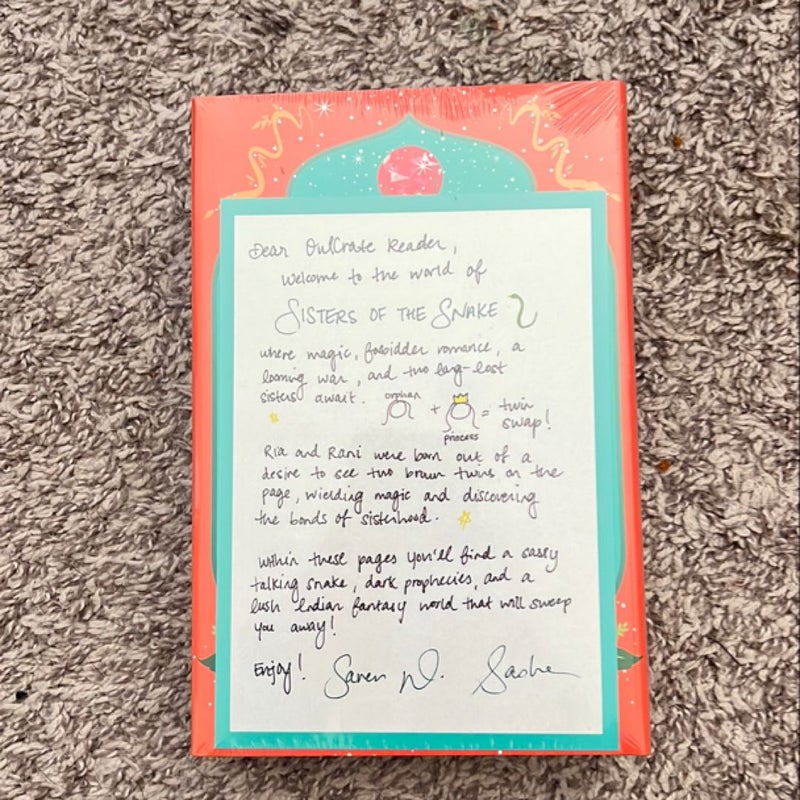 Dear OwlCrate Reader,
Welcome to the world of
SISTERS OF THE SNAKE
where magic, forbidden romance, a
looming war, and two long-lost
sisters await.
orphan + princess = twin swap!
Ria and Rani were born out of a
desire to see two brown twins on the
page, wielding magic and discovering
the bonds of sisterhood.
Within these pages you'll find a sassy
talking snake, dark prophecies, and a
lush Indian fantasy world that will sweep
you away!
Enjoy! Saren N. Sasha